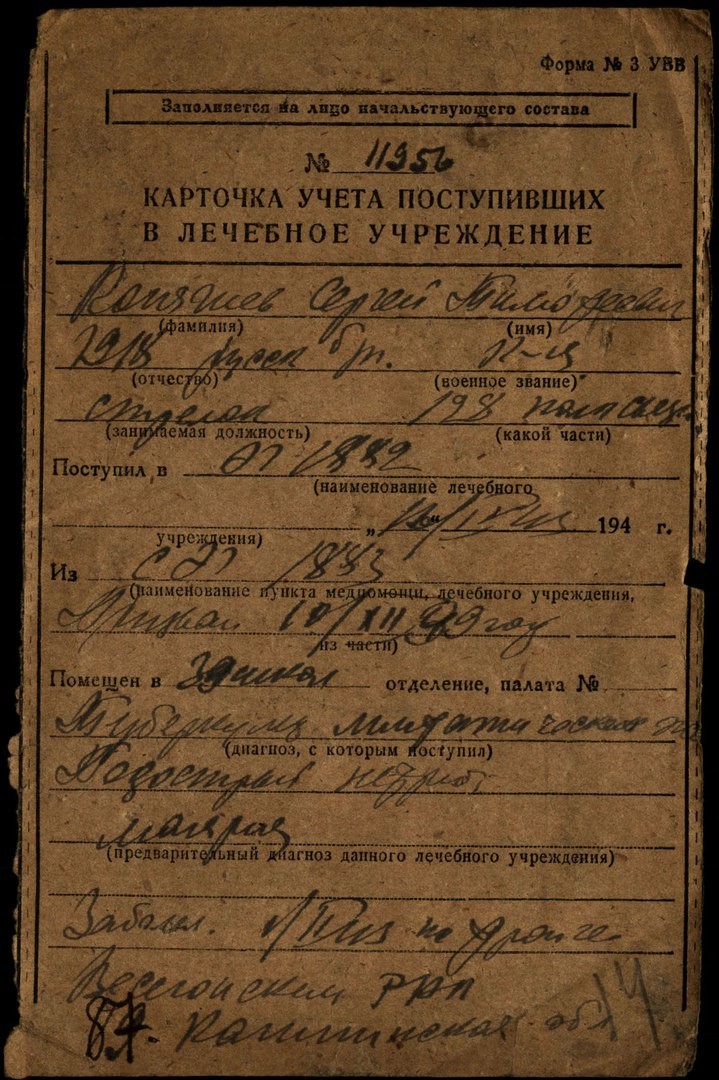 Форма № 3 УВВ
Заполняется на лицо начальствующего состава
№ 11956
КАРТОЧКА УЧЕТА ПОСТУПИВШИХ
В ЛЕЧЕБНОЕ УЧРЕЖДЕНИЕ
Сергей Тимофеевич
(фамилия) (имя)
1918
(отчество) (военное звание)
стрелок 198
(занимаемая должность) (какой части)
Поступил в ЭГ 1882
(наименование лечебного
учреждения) „ “ 194 г.
Из ЭГ 1883
(наименование пункта медпомощи, лечебного учреждения,
Призван 10/XII 39 году
из части)
Помещен в отделение, палата №
Туберкулез
(диагноз, с которым поступил)
Подострый нефрит
малярия
(предварительный диагноз данного лечебного учреждения)
Забол. на фронте
Весегонским РВК
87. Калининская обл
14